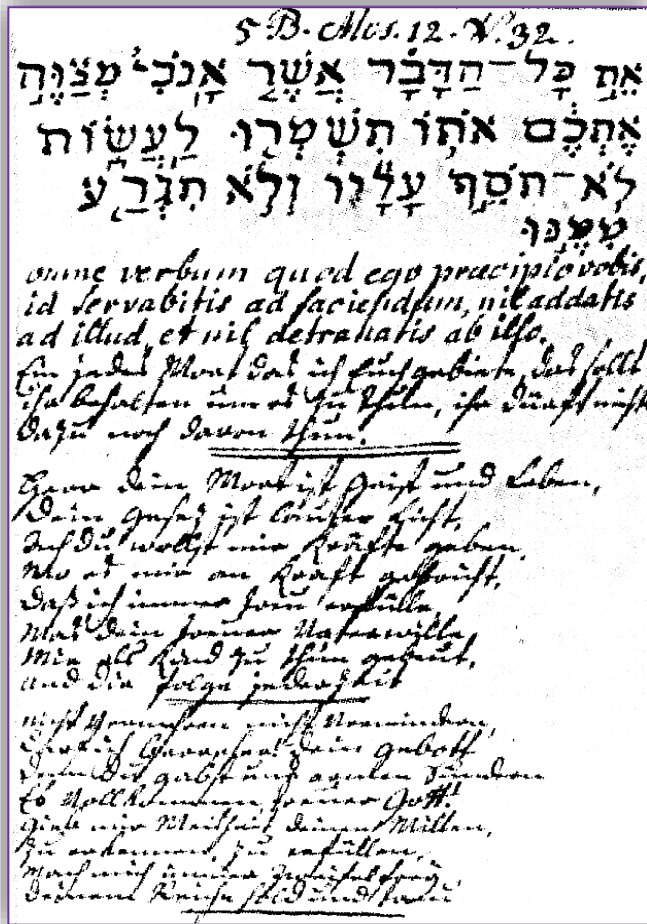 5 B. Mos. 12. V. 32.
אֵת כָּל־הַדָּבָר אֲשֶׁר אָנֹכִי מְצַוֶּה
אֶתְכֶם אֹתוֹ תִשְׁמְרוּ לַעֲשׂוֹת
לֹא־תֹסֵף עָלָיו וְלֹא תִגְרַע
מִמֶּנּוּ
omne verbum quod ego præcipio vobis,
id servabitis ad faciendum, nil addatis
ad illud, et nil detrahatis ab illo.
Ein jedes Wort das ich Euch gebiete, das sollt
ihr behalten um es zu thun, ihr dürft nicht
dazu noch davon thun.
Herr dein Wort ist Geist und Leben,
Dein Gesez ist lauter Licht,
Ach du wollst mir Kräfte geben,
Wo es mir an Kraft gebricht,
Daß ich immer treu erfülle,
Was dein treuer Vaterwille,
Mir als Kind zu thun gebeut,
und die folge jederzeit
nicht vermehren nicht vermindern,
ich dein Gebott
Denn Du gabst uns armen Sündern
Es Vollkommen treuer Gott!
Gieb mir Weisheit deinen Willen,
Zu erkennen, zu erfüllen,
Mach mich immer
deinem Reiche hold und treu